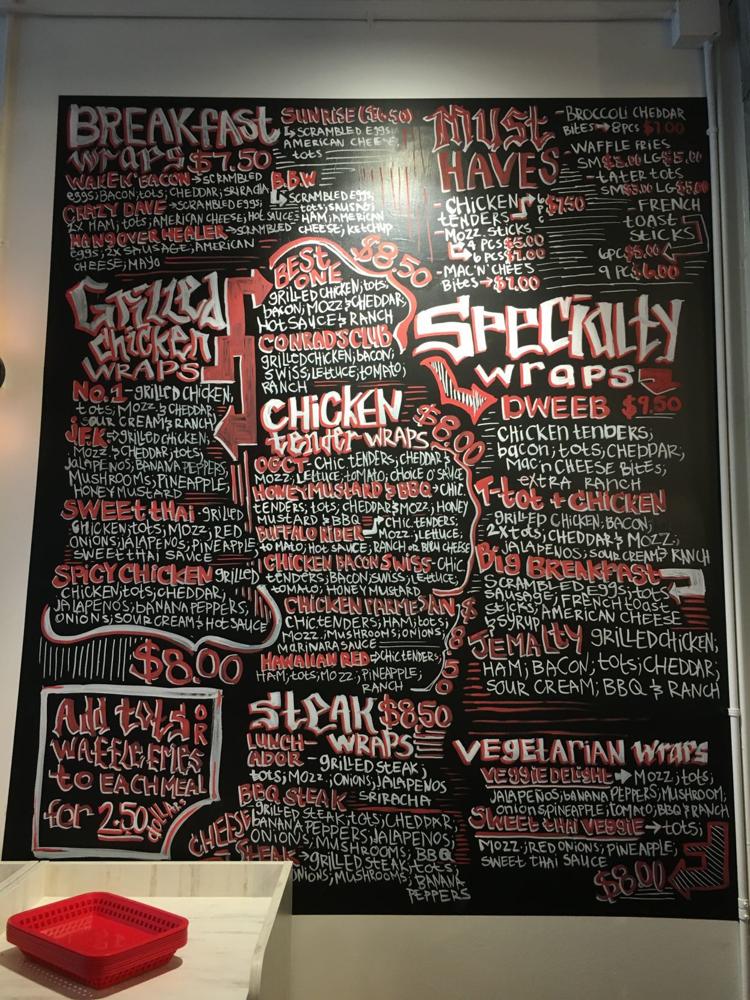 BREAKfast
wraps $7.50
WAKE N' BACON → SCRAMBLED
eggs; BACON; tots; CHEDDAR; SRIRACHA
CRAZY DAVE → SCRAMBLED EGGS;
2X HAM; tots; AMERICAN CHEESE; HOT SAUCE
HANGOVER HEALER → SCRAMBLED
eggs; 2X SAUSAGE; AMERICAN
CHEESE; MAYO
SUNRISE
SCRAMBLED EGGS;
AMERICAN CHEESE;
tots
B.B.W
SCRAMBLED EGGS;
tots; SAUSAGE;
HAM; AMERICAN
CHEESE; KETCHUP
MUST
HAVES
-CHICKEN
tenders 6 P $7.50
-MOZZ. STICKS
4 PCS $5.00
6 PCS $7.00
-MAC 'N' CHEES
Bites → $7.00
-BROCCOLI CHEDDAR
Bites → 8pcs $7.00
-WAFFLE FRIES
SM $3.00 LG $5.00
-TATER TOTS
SM $3.00 LG $5.00
-FRENCH
TOAST
STICKS
6PC $5.00
9 PC $6.00
Grilled
chicken
WRAPS
NO. 1 - GRILLED CHICKEN,
tots; MOZZ & CHEDDAR;
SOUR CREAM & RANCH
JFK → GRILLED CHICKEN;
MOZZ & CHEDDAR; tots;
JALAPENOS; BANANA PEPPERS;
MUSHROOMS; PINEAPPLE,
HONEY MUSTARD
SWEET THAI - GRILLED
CHICKEN; TOTS; MOZZ; RED
ONIONS; JALAPENOS; PINEAPPLE
SWEET THAI SAUCE
SPICY CHICKEN grilled
CHICKEN; tots; CHEDDAR;
JALAPENOS; BANANA PEPPERS;
ONIONS; SOUR CREAM & HOT SAUCE
$8.00
BEST
ONE $8.50
GRILLED CHICKEN; tots;
BACON; MOZZ & CHEDDAR
HOT SAUCE & RANCH
CONRAD'S CLUB
GRILLED CHICKEN; BACON;
SWISS; LETTUCE; TOMATO;
RANCH
CHICKEN
tender WRAPS $8.00
OGCT - CHIC. TENDERS; CHEDDAR &
MOZZ; LETTUCE; TOMATO; CHOICE O' SAUCE
HONEY MUSTARD & BBQ → CHIC.
TENDERS; tots; CHEDDAR & MOZZ; HONEY
MUSTARD & BBQ
BUFFALO RIDER CHIC. TENDERS;
MOZZ; LETTUCE;
TOMATO; HOT SAUCE; RANCH OR BLEU CHEESE
CHICKEN BACON SWISS - CHIC
TENDERS; BACON; SWISS; LETTUCE;
TOMATO; HONEY MUSTARD
CHICKEN PARMESAN
CHIC. TENDERS; HAM; TOTS;
MOZZ.; MUSHROOMS; ONIONS
MARINARA SAUCE
HAWAIIAN RED → CHIC. TENDERS;
HAM; TOTS; MOZZ; PINEAPPLE;
RANCH
$8.50
SPECIALTY
wraps
DWEEB $9.50
CHICKEN TENDERS;
bacon; tots; CHEDDAR;
MAC n CHEESE BITES;
EXTRA RANCH
T-tot + CHICKEN
GRILLED CHICKEN; BACON;
2X tots; CHEDDAR & MOZZ.;
JALAPENOS; SOUR CREAM & RANCH
Big BREAKFAST
SCRAMBLED EGGS; tots
SAUSAGE; FRENCH TOAST
STICKS; AMERICAN CHEESE
& SYRUP
JEMALTY GRILLED CHICKEN;
HAM; BACON; TOTS; CHEDDAR;
SOUR CREAM; BBQ & RANCH
Add tots OR
WAFFLE FRIES
to EACH MEAL
for 2.50 dollars
STEAK $8.50
WRAPS
LUNCH-
ADOR - GRILLED STEAK;
tots; MOZZ.; ONIONS; JALAPENOS
SRIRACHA
BBQ STEAK
GRILLED STEAK; tots; CHEDDAR;
BANANA PEPPERS; JALAPENOS;
ONIONS; MUSHROOMS; BBQ
CHEESE
STEAK → GRILLED STEAK; TOTS;
ONIONS; MUSHROOMS; BANANA
PEPPERS
VEGETARIAN wraps
VEGGIE DELIGHT → MOZZ; tots;
JALAPEÑOS; BANANA PEPPERS; MUSHROOM;
onion; SPINEAPPLE; TOMATO; BBQ & RANCH
SWEET THAI VEGGIE → tots;
MOZZ.; RED ONIONS; PINEAPPLE;
SWEET THAI SAUCE
$8.00